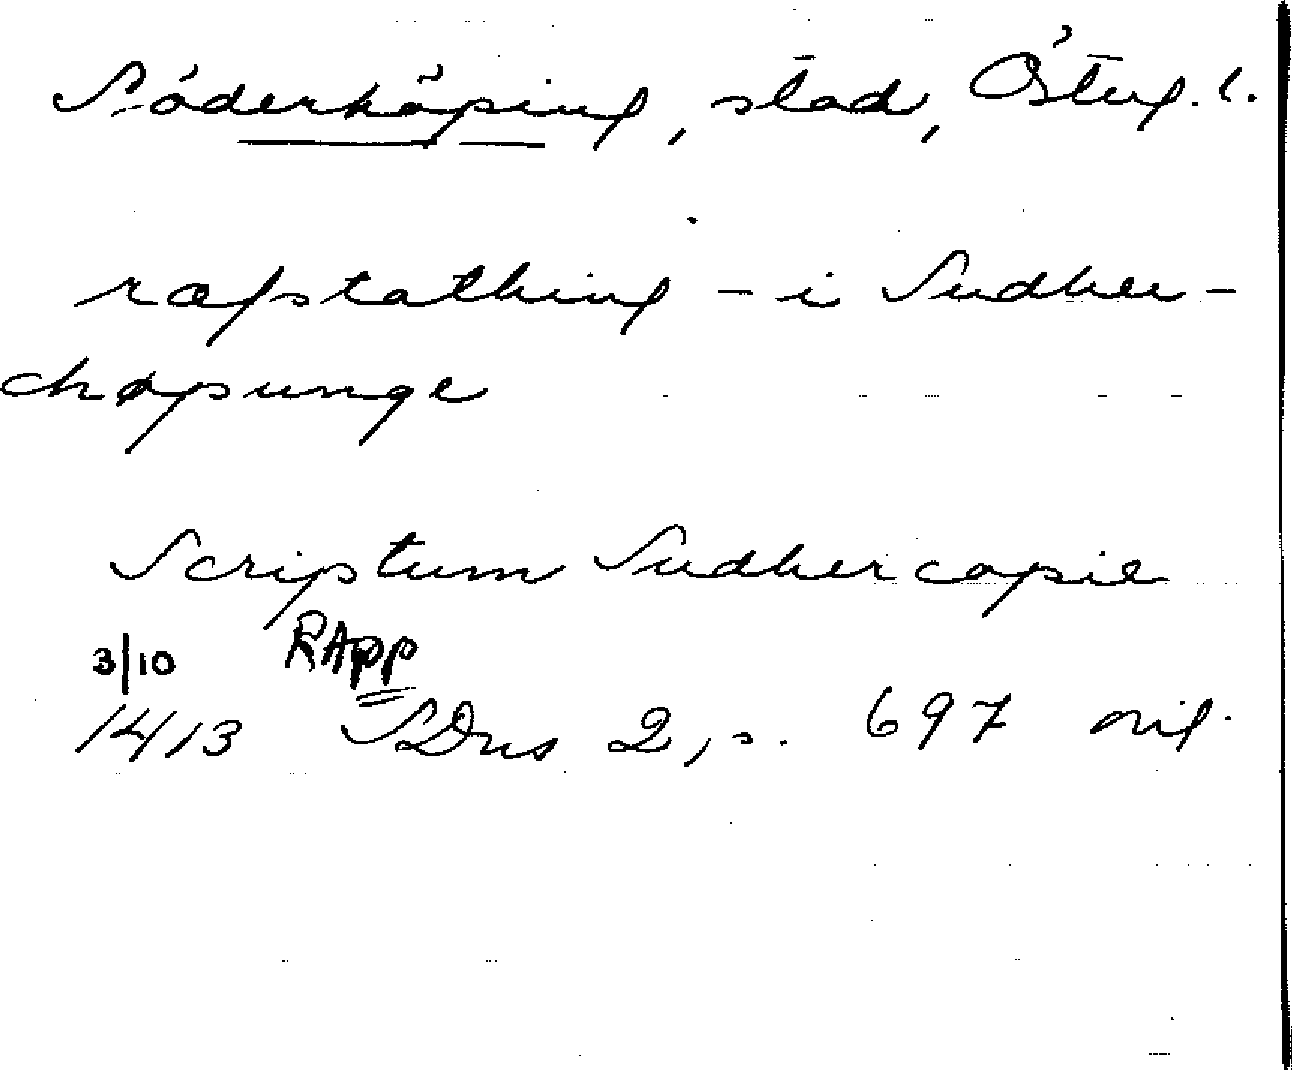 Söderköping, stad, Österg. l.
ræfstathing - i Sudher-
chøpunge
Scriptum Sudhercopie
3/10 RAPP
1413 SDns 2, s. 697